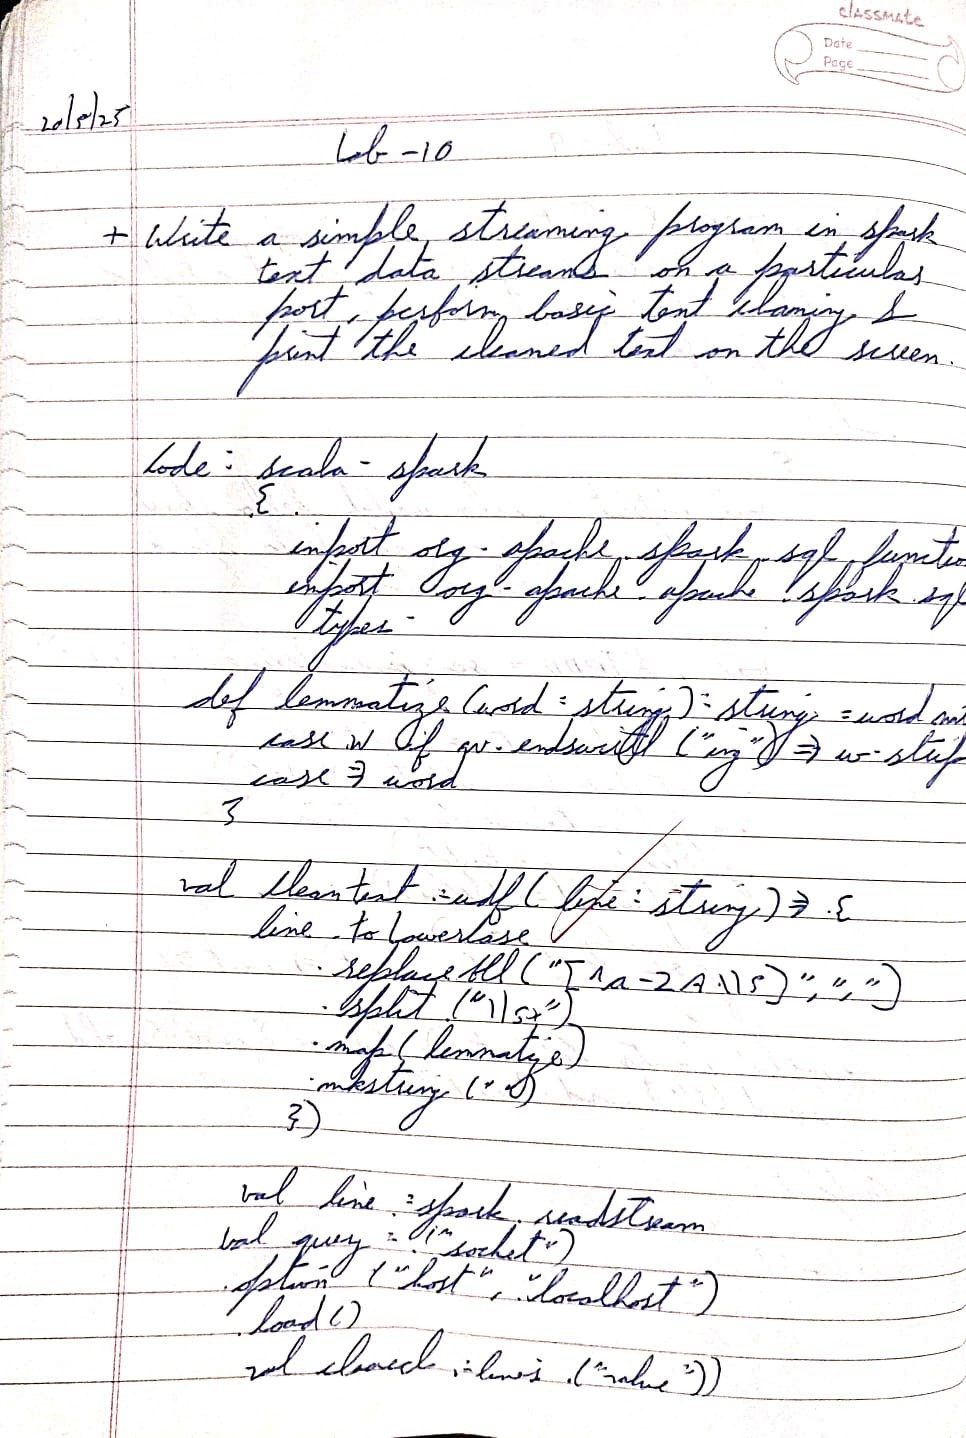 classmate
Date
Page
20/5/25
Lab - 10
+ Write a simple streaming program in spark
text data streams on a particular
port, perform basic text cleaning &
print the cleaned text on the screen.
Code : scala - spark
{
import org. apache. spark. sql. functio
import org. apache. apache. spark. sql
types.
def lemmatize (word : string) : string = word
case w if w. endswith ("ing") => w. strip
case => word
}
val cleantext = udf ( line : string) => {
line . to Lowercase
. replace All ("[^a-zA \\s]", "")
. split ("\\s+")
. map ( lemmatize)
. mkstring (" ")
})
val line = spark. readstream
val query = ("socket")
. option ("host", "localhost")
. load ()
val cleaned = lines . ("value"))